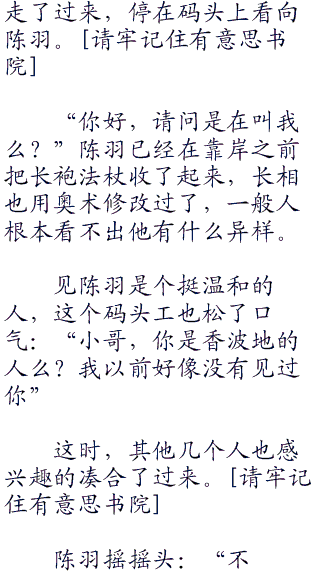 走了过来，停在码头上看向
陈羽。[请牢记住有意思书
院]
“你好，请问是在叫我
么？”陈羽已经在靠岸之前
把长袍法杖收了起来，长相
也用奥术修改过了，一般人
根本看不出他有什么异样。
见陈羽是个挺温和的
人，这个码头工也松了口
气：“小哥，你是香波地的
人么？我以前好像没有见过
你”
这时，其他几个人也感
兴趣的凑合了过来。[请牢记
住有意思书院]
陈羽摇摇头：“不